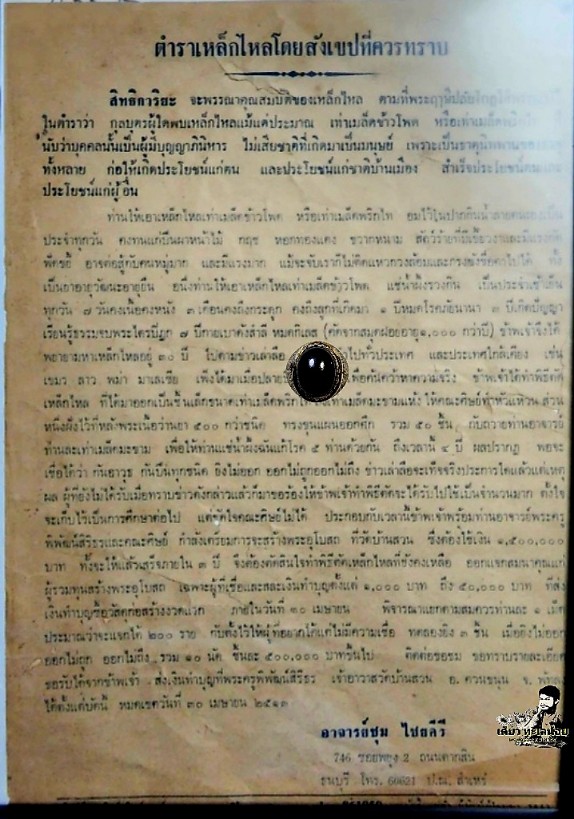 ตำราเหล็กไหลโดยสังเขปที่ควรทราบ
สิทธิการิยะ จะพรรณาคุณสมบัติของเหล็กไหล ตามที่พระฤาษี
ในตำราว่า กุลบุตรผู้ใดพบเหล็กไหลแม้แต่ประมาณ เท่าเมล็ดข้าวโพด หรือเท่าเมล็ดพริกไท
นับว่าบุคคลนั้นเป็นผู้มีบุญญาภินิหาร ไม่เสียชาติที่เกิดมาเป็นมนุษย์ เพราะเป็นธาตุ
ทั้งหลาย ก่อให้เกิดประโยชน์แก่ตน และประโยชน์แก่ชาติบ้านเมือง สำเร็จประโยชน์ตน
ประโยชน์แก่ผู้อื่น
ท่านให้เอาเหล็กไหลเท่าเมล็ดข้าวโพด หรือเท่าเมล็ดพริกไท อมไว้ในปาก
ประจำทุกวัน คงทนแก่ปืนผาหน้าไม้ กฤช หอกทองแดง ขวากหนาม สัตว์ร้ายที่มีเขี้ยวงาและมี
พิศขอ อาจต่อสู้กับคนหมู่มาก และมีแรงมาก แม้จะจับเราก็ไม่ติด
เป็นยาอายุวัฒนะอายุยืน อนึ่งท่านให้เอาเหล็กไหลเท่าเมล็ดข้าวโพด แช่น้ำผึ้งรวงกิน เป็นประจำเช้าเย็น
ทุกวัน ๗ วันคงเนื้อคงหนัง ๓ เดือนคงถึงกระดูก คงถึงลูกที่เกิดมา ๑ ปีหมดโรคภัยนานา ๓ ปีเกิดปัญญา
เรียนรู้จบพระไตรปิฎก ๗ ปีกายเบาดังสำลี หมดกิเลส (คัดจากสมุดฝอยอายุ ๑,๐๐๐ กว่าปี) ข้าพเจ้าจึงได้
พยายามหาเหล็กไหลอยู่ ๓๐ ปี ไปตามข่าวเล่าลือ ไปทั่วประเทศ และประเทศใกล้เคียง เช่น
เขมร ลาว พม่า มาเลเซีย เพิ่งได้มาเมื่อปลาย เพื่อค้นคว้าหาความจริง ข้าพเจ้าได้ทำพิธีตัด
เหล็กไหล ที่ได้มาออกเป็นชิ้นเล็กขนาดเท่าเมล็ดพริกไท ถึงเท่าเมล็ดมะขามแห้ง ให้คณะศิษย์ทำหัวแหวน ส่วน
หนึ่งฝังไว้ที่หลังพระเนื้อว่านยา ๕๐๐ กว่าชนิด ทรงขุนแผนออกศึก รวม ๕๐ ชิ้น กับถวายท่านอาจารย์
ท่านละเท่าเมล็ดมะขาม เพื่อให้ท่านแช่น้ำผึ้งฉันแก้โรค ๕ ท่านด้วยกัน ถึงเวลานี้ ๔ ปี ผลปรากฏ พอจะ
เชื่อได้ว่า กันอาวุธ กันปืนทุกชนิด ยิงไม่ออก ออกไม่ถูกออกไม่ถึง ข่าวเล่าลือจะเท็จจริงประการใดแล้วแต่เหตุ
ผล ผู้ที่ยังไม่ได้รับเมื่อทราบข่าวดังกล่าวแล้วก็มาขอร้องให้ข้าพเจ้าทำพิธีตัดจะได้รับไปใช้เป็นจำนวนมาก ตั้งใจ
จะเก็บไว้เป็นการศึกษาต่อไป แต่ขัดใจคณะศิษย์ไม่ได้ ประกอบกับเวลานี้ข้าพเจ้าพร้อมท่านอาจารย์พระครู
พิพัฒน์สิริธรและคณะศิษย์ กำลังเตรียมการจะสร้างพระอุโบสถ ที่วัดบ้านสวน ซึ่งต้องใช้เงิน ๑,๕๐๐,๐๐๐
บาท ทั้งจะให้แล้วเสร็จภายใน ๓ ปี จึงต้องตัดสินใจทำพิธีตัดเหล็กไหลที่ยังคงเหลือ ออกแจกสมนาคุณแก่
ผู้ร่วมทุนสร้างพระอุโบสถ เฉพาะผู้ที่เชื่อและสละเงินทำบุญตั้งแต่ ๑,๐๐๐ บาท ถึง ๕๐,๐๐๐ บาท ที่ส่ง
เงินทำบุญซื้อวัสดุก่อสร้างงวดแรก ภายในวันที่ ๓๐ เมษายน พิจารณาแยกตามสมควรท่านละ ๑ เม็ด
ประมาณว่าจะแจกได้ ๒๐๐ ราย กับตั้งไว้ให้ผู้ที่อยากได้แต่ไม่มีความเชื่อ ทดลองยิง ๓ ชิ้น เมื่อยิงไม่ออก
ออกไม่ถูก ออกไม่ถึง รวม ๑๐ นัด ชิ้นละ ๕๐๐,๐๐๐ บาทขึ้นไป ติดต่อขอชม ขอทราบรายละเอียด
ขอรับได้จากข้าพเจ้า ส่งเงินทำบุญที่พระครูพิพัฒน์สิริธร เจ้าอาวาสวัดบ้านสวน อ. ควนขนุน จ. พัทลุง
ได้ตั้งแต่บัดนี้ หมดเขตวันที่ ๓๐ เมษายน ๒๕๑๓
อาจารย์ชุม ไชยคีรี
746 ซอยพยุง 2 ถนนตากสิน
ธนบุรี โทร. 60621 ป.ณ. สำเหร่